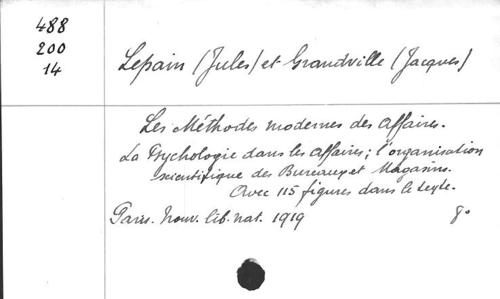 488
200
14
Lepain (Jules) et Grandville (Jacques)
Les Méthodes modernes des Affaires.
La Psychologie dans les affaires ; l'organisation
scientifique des Bureaux et Magasins.
Avec 115 figures dans le texte.
Paris. Nouv. lib. nat. 1919 8°